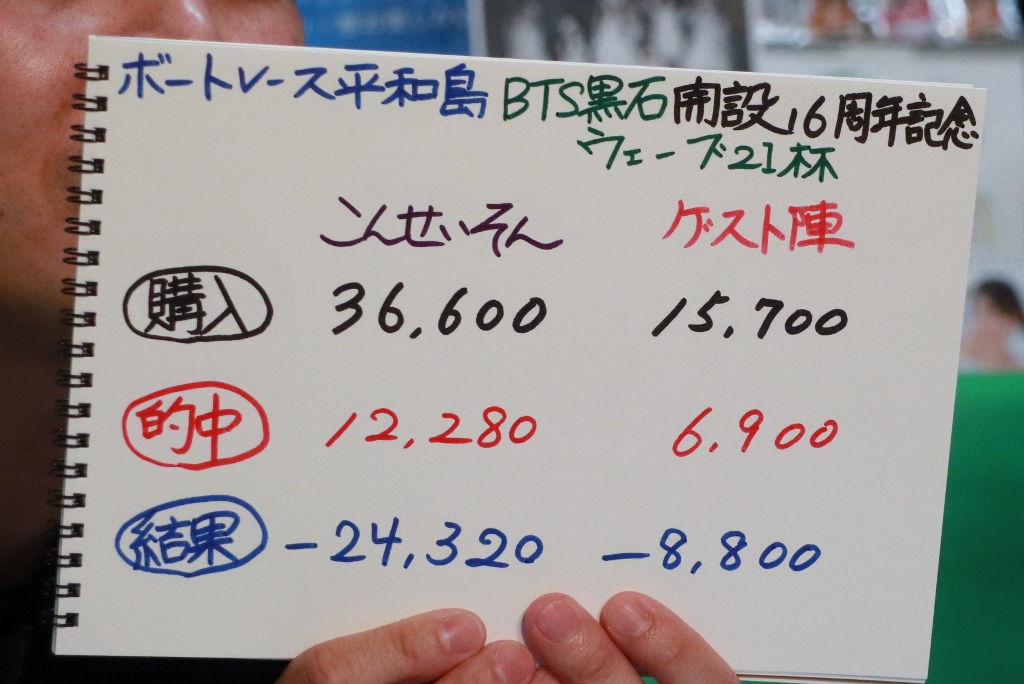 ボートレース平和島 BTS黒石 開設16周年記念
ウェーブ21杯
こんせいそん ゲスト陣
購入 36,600 15,700
的中 12,280 6,900
結果 -24,320 -8,800